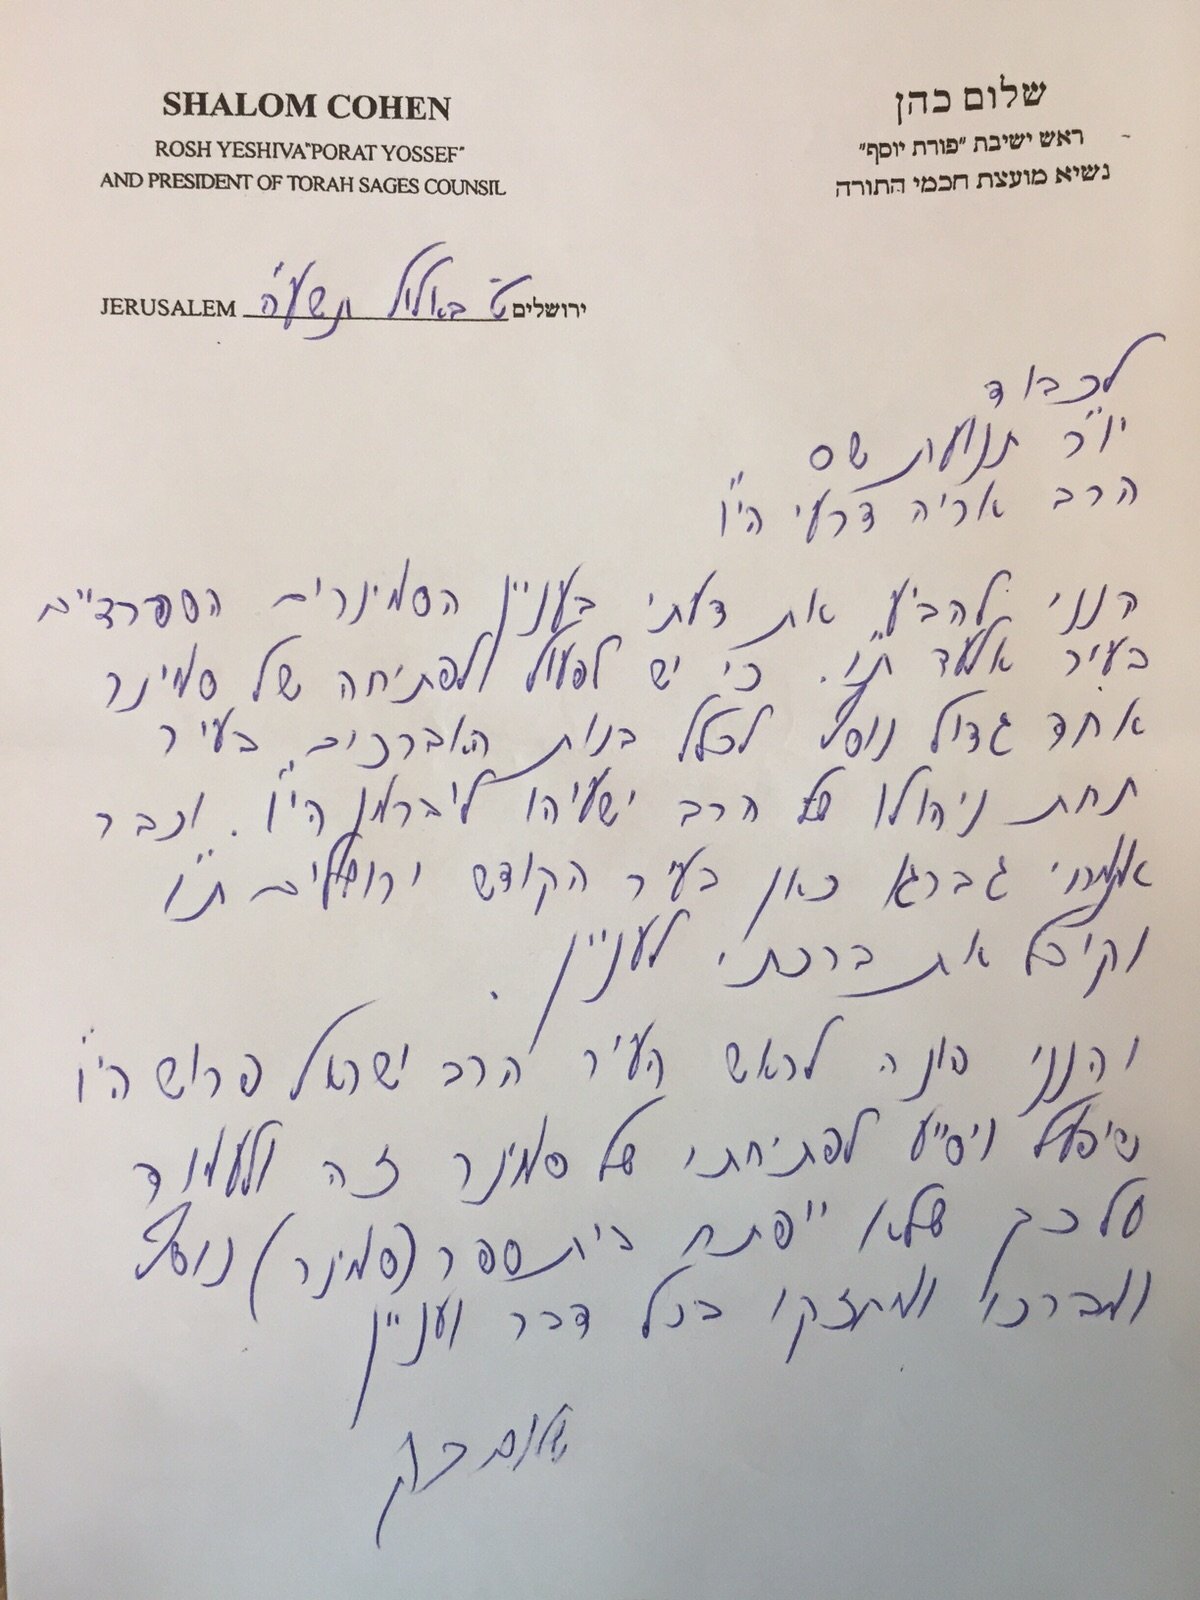 SHALOM COHEN
ROSH YESHIVA"PORAT YOSSEF"
AND PRESIDENT OF TORAH SAGES COUNSIL
שלום כהן
ראש ישיבת "פורת יוסף"
נשיא מועצת חכמי התורה
JERUSALEM ט' באלול תשע"ה ירושלים
לכבוד
יו"ר תנועת שס
הרב אריה דרעי הי"ו
הנני להביע את דעתי בעניין הסמינרים הספרד"ם
בעיר אלעד ת"ו. כי יש לפעול לפתיחה של סמינר
אחד גדול נוסף לכלל בנות האברכים בעיר
תחת ניהולו של הרב ישעיהו ליברמן הי"ו. וכבר
גברא כאן בעיר הקודש ירושלים ת"ו
וקיבל את ברכתי לעניין.
והנני פונה לראש העיר הרב ישראל פרוש הי"ו
שיפעל ויסייע לפתיחתי של סמינר זה ולעמוד
על כך שלא ייפתח בית ספר (סמינר) נוסף
ומברכו ומחזקו בכל דבר ועניין
שלום כהן